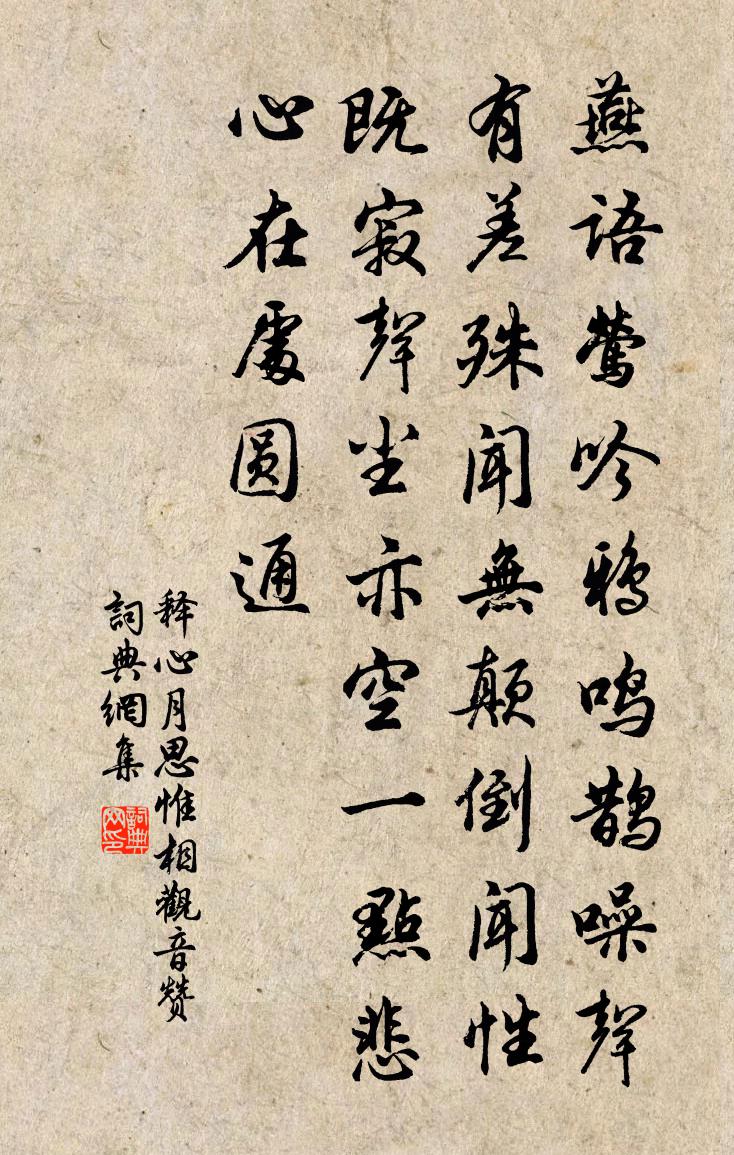 燕语莺吟鸦鸣鹊噪聲
有差殊闻無颠倒闻性
既寂聲尘亦空一點悲
心在處圆通
释心月思惟相觀音赞
詞典網集
詞典网印